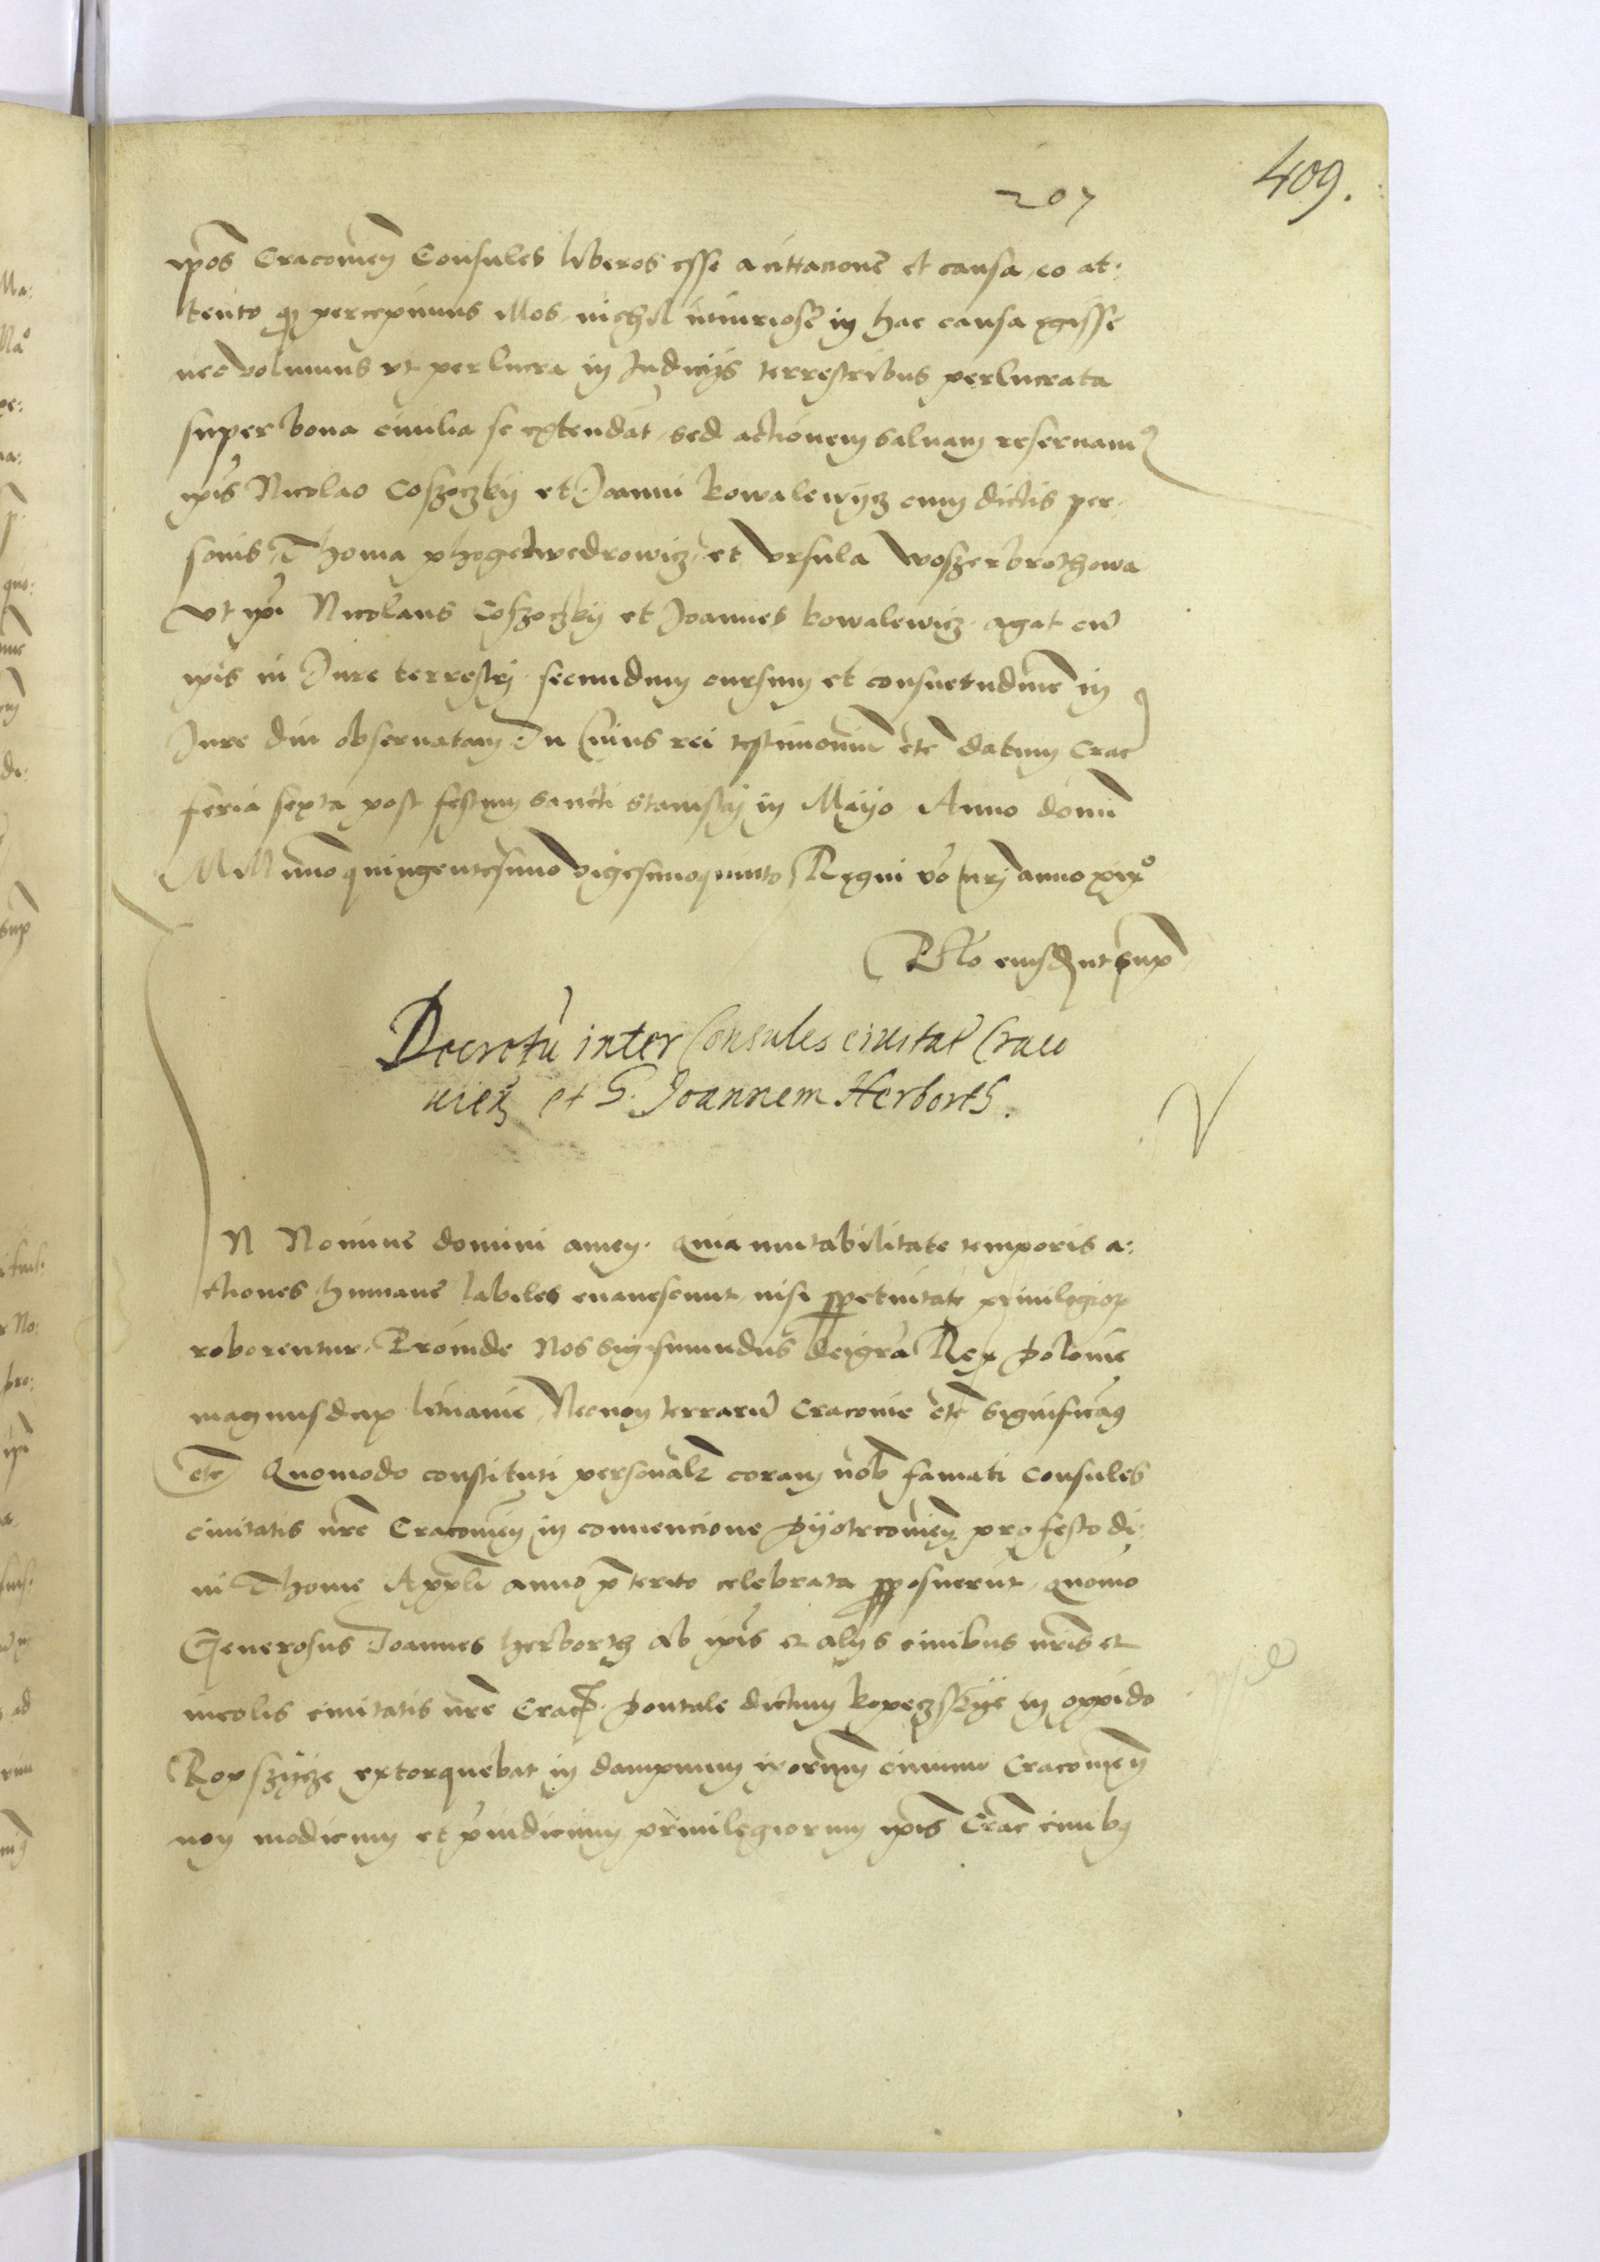 207
409.
ip̄os Cracovień Consules liberos esse a cittacione et causa eo at:
tento q percepimus illos nichil iniuriose in hac causa egisse
nec volumus vt perlucra in Judicijs terrestribus perlucrata
super bona ciuilia se extendāt, sed actionem saluam reseruam9
ip̄is Nicolao Coszoczky et Joanni kowalewycz cum dictis per
sonis, Thoma et vrsula Woszerbrothowa
vt ip̄i Nicolaus Coszoczkij et Joannes kowalewicz agāt cū
ip̄is in Jure terrestrj secundum cursum et consuetudinē in
Jure diu obseruatam In Cuius rei testimoniū etc̄ datum Crac
feria sexta post festum sancti stanislaj in Maijo Anno domi
Mill̄imo quingentesimo vigesimoquinto Regni vō nrj anno xix°
R̄lo eiusd ut sup
Decretū inter Consules ciuitat̄ Craco
uień et G. Joannem Herborth.
N Nomine domini amen. Quia mutabilitate temporis a:
ctiones humane labiles euanescunt nisi ꝑpetuitate priuilegioꝝ
roborentur, Proinde Nos Sigismundus dei grā Rex polonie
magnus dux lituanie, Necnon terrarū Cracovie etc̄ significam9
etc̄ Quomodo constituti personalr̄ coram nob̄ famati consules
ciuitatis nr̄e Cracovień in conuencione pyotrcovień pro festo di:
ui Thome Ap̄pli anno p̄terito celebrata ꝓposuerūt, quomo
Generosus Joannes herborth ab ip̄is et alijs ciuibus nr̄is et
incolis ciuitatis nr̄e Crac. pontale dictum kopeczskije in oppido
Ropszicze extorquebat in dampnum ip̄orum ciuium Cracovień
non modicum et p̄iudicium priuilegiorum ip̄is Crac̄ ciuib9